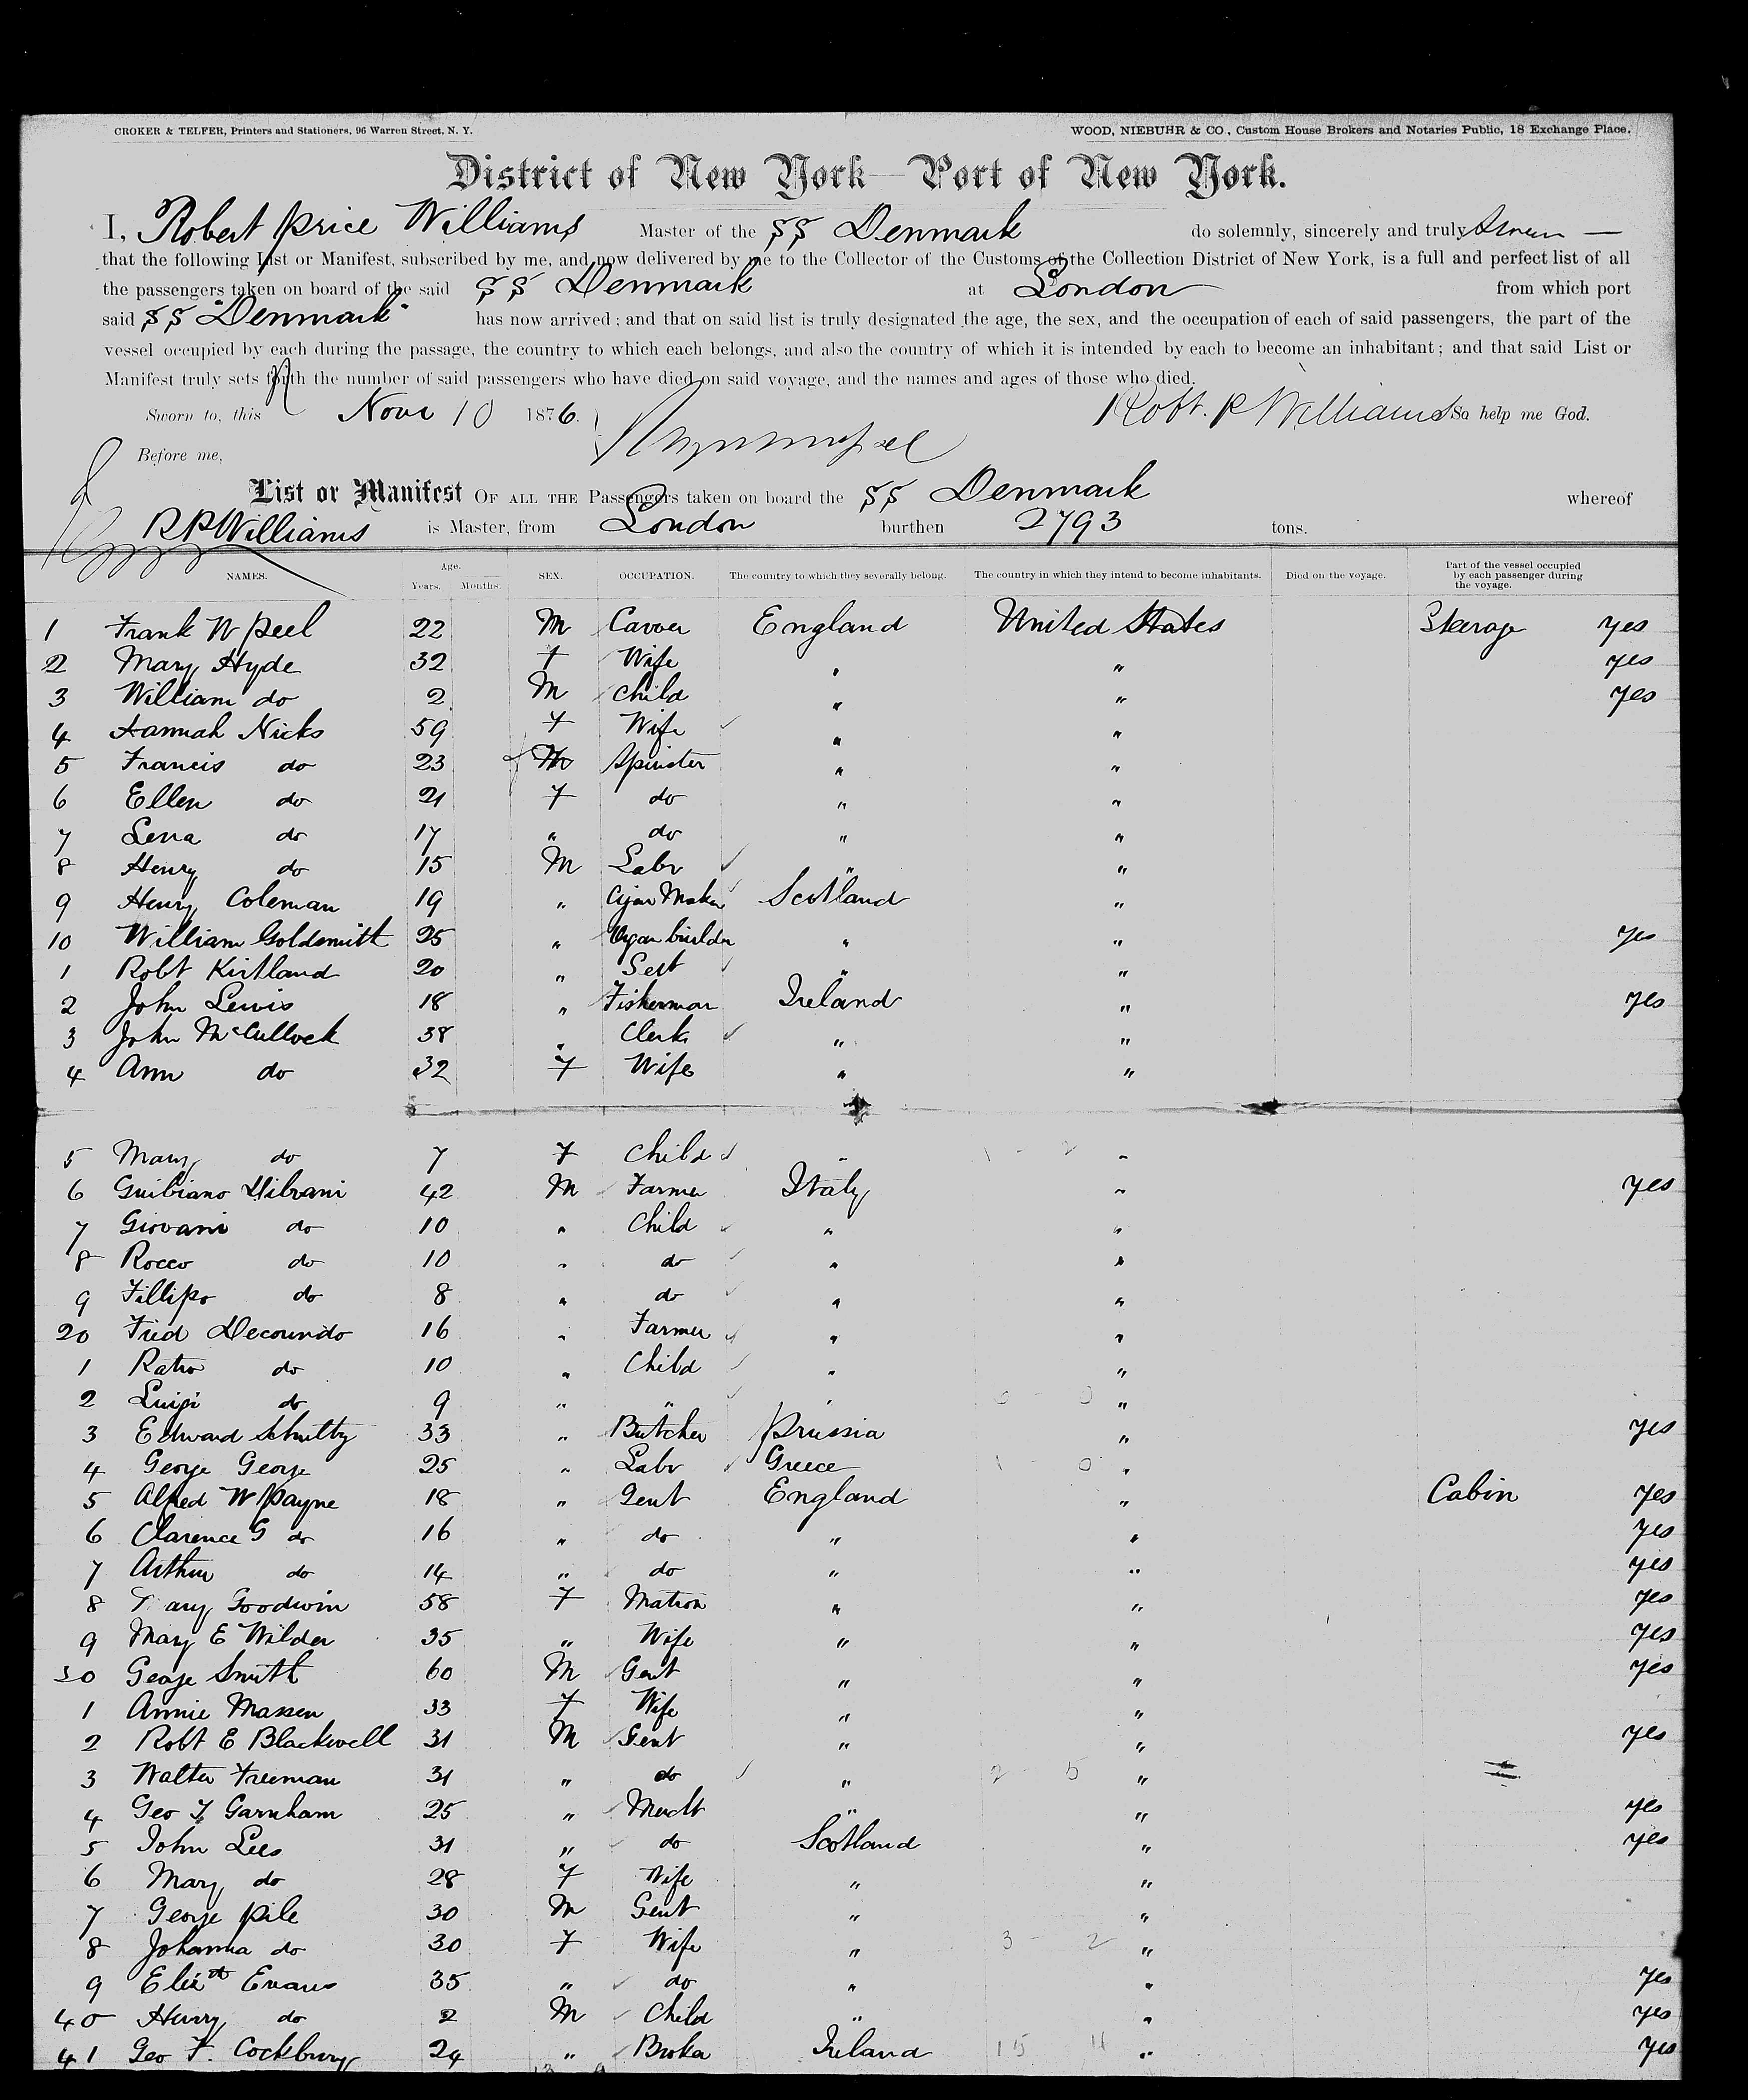 CROKER & TELFER, Printers and Stationers, 96 Warren Street, N. Y. WOOD, NIEBUHR & CO., Custom House Brokers and Notaries Public, 18 Exchange Place.
District of New York—Port of New York.
I, Robert Price Williams Master of the SS Denmark do solemnly, sincerely and truly Swear —
that the following List or Manifest, subscribed by me, and now delivered by me to the Collector of the Customs of the Collection District of New York, is a full and perfect list of all
the passengers taken on board of the said SS Denmark at London from which port
said SS "Denmark" has now arrived; and that on said list is truly designated the age, the sex, and the occupation of each of said passengers, the part of the
vessel occupied by each during the passage, the country to which each belongs, and also the country of which it is intended by each to become an inhabitant; and that said List or
Manifest truly sets forth the number of said passengers who have died on said voyage, and the names and ages of those who died.
Sworn to, this Novr 10 1876. Robt. P Williams So help me God.
Before me,
List or Manifest OF ALL THE Passengers taken on board the SS Denmark whereof
R P Williams is Master, from London burthen 2793 tons.
NAMES. Age. Years. Months. SEX. OCCUPATION. The country to which they severally belong. The country in which they intend to become inhabitants. Died on the voyage. Part of the vessel occupied by each passenger during the voyage.
1 Frank W Peel 22 M Carver England United States Steerage yes
2 Mary Hyde 32 F Wife " " yes
3 William do 2 M Child " " yes
4 Hannah Nicks 59 F Wife " "
5 Francis do 23 M Spinster " "
6 Ellen do 21 F do " "
7 Lena do 17 " do " "
8 Henry do 15 M Labr " "
9 Henry Coleman 19 " Cigar Maker Scotland "
10 William Goldsmith 25 " Organ builder " " yes
1 Robt Kirtland 20 " " "
2 John Lewis 18 " Fisherman Ireland " yes
3 John McCullock 38 " Clerk " "
4 Ann do 32 F Wife " "
5 Mary do 7 F Child " "
6 Guibiano 42 M Farmer Italy " yes
7 Giovani do 10 " Child " "
8 Rocco do 10 " do " "
9 Fillipo do 8 " do " "
20 Fred Decoundo 16 " Farmer " "
1 do 10 " Child " "
2 Luigi do 9 " " " "
3 Edward Schultz 33 " Butcher Prussia " yes
4 George George 25 " Labr Greece "
5 Alfred W Payne 18 " Gent England " Cabin yes
6 Clarence G do 16 " do " " yes
7 Arthur do 14 " do " " yes
8 Mary Goodwin 58 F Matron " " yes
9 Mary E Wilder 35 " Wife " " yes
30 George Smith 60 M Gent " " yes
1 Annie Massen 33 F Wife " "
2 Robt E Blackwell 31 M Gent " " yes
3 Walter Freeman 31 " do " "
4 Geo Garnham 25 " Mercht " " yes
5 John Lees 31 " do Scotland " yes
6 Mary do 28 F Wife " "
7 George Pile 30 M Gent " "
8 Johanna do 30 F Wife " "
9 Elizth Evans 35 " do " " yes
40 Henry do 2 M Child " " yes
41 Geo F. Cockburn 24 " Broker Ireland " yes